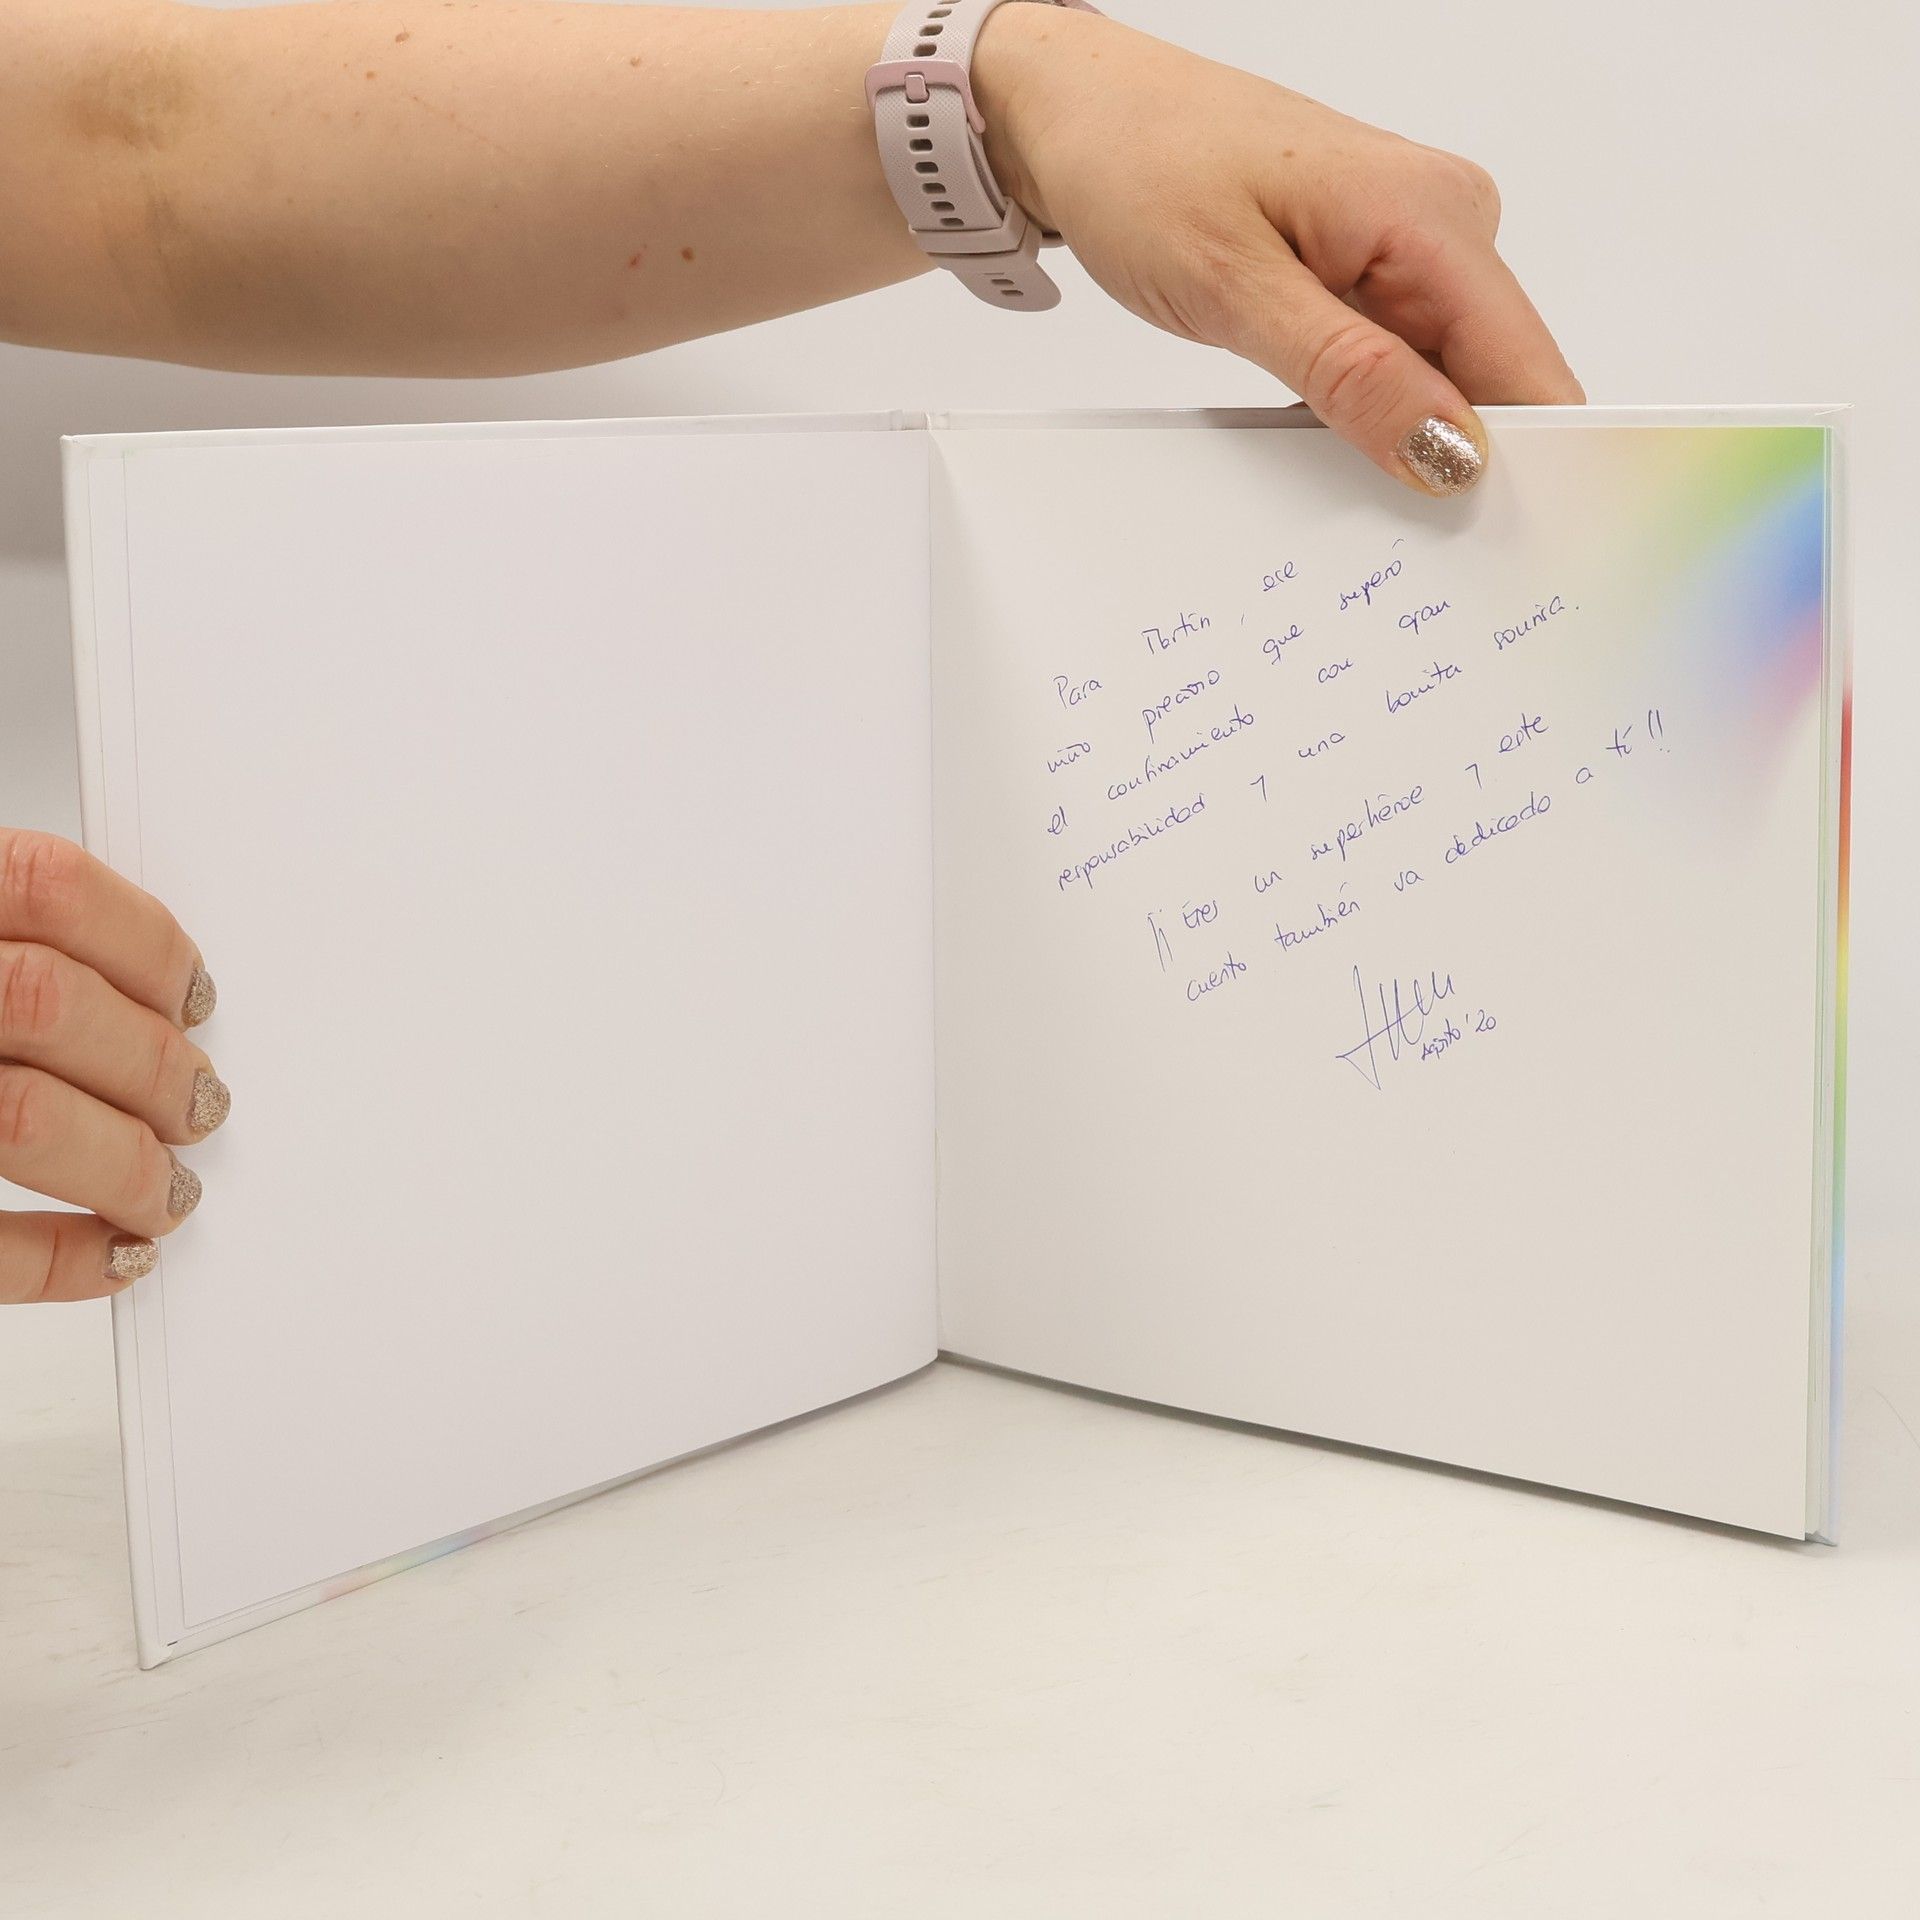 Para Martín, ese
niño precioso que superó
el confinamiento con gran
responsabilidad y una bonita sonrisa.
¡¡Eres un superhéroe y este
cuento también va dedicado a tí!!
Agosto '20